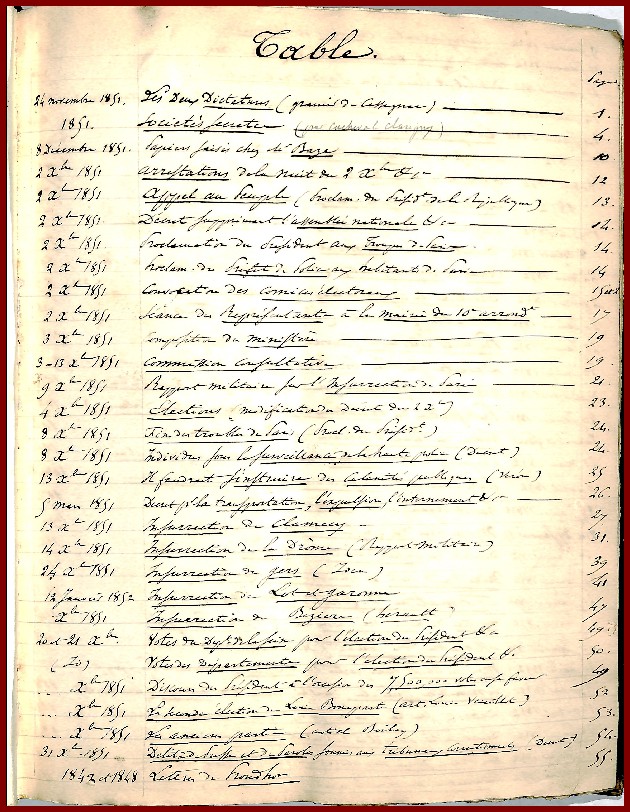 Table.
Pages
24 novembre 1851. Les Deux Dictatures (granier de Cassagnac) 1.
1851. Sociétés secrètes (par cucheval clarigny) 4.
8 Décembre 1851. Papiers saisis chez Mr Baze 10
2 Xbre 1851 arrestations de la nuit du 2 Xbre &c 12
2 Xbre 1851 Appel au Peuple (Proclam. du Présidt de la République) 13.
2 Xbre 1851 Décret supprimant l'assemblée nationale &c 14.
2 Xbre 1851 Proclamation du Président aux Troupes de Paris 14
2 Xbre 1851 Proclam. du Préfet de Police aux habitants de Paris 14
2 Xbre 1851 Convocation des comices électoraux 15
2 Xbre 1851 Séance des Représentants à la mairie du 10e arrondt 17
3 Xbre 1851 Composition du ministère 19
3-13 Xbre 1851 Commission consultative 19.
9 Xbre 1851 Rapport militaire sur l'Insurrection de Paris 21.
4 Xbre 1851 Elections (modification du Décret du 2 Xbre) 23.
8 Xbre 1851 Fin des troubles de Paris (Procl. du Présidt) 24.
8 Xbre 1851 Individus sous la surveillance de la haute police (Décret) 24.
13 Xbre 1851 Il faudrait s'instruire des Calamités publiques 25
5 mars 1851 Décret pr la transportation, l'expulsion, l'internement &c 26.
13 Xbre 1851 Insurrection de Clamecy 27
14 Xbre 1851 Insurrection de la Drôme (Rapport militaire) 31.
24 Xbre 1851 Insurrection du gers (Idem) 39
12 Janvier 1852 Insurrection du Lot et garonne 41
Xbre 1851 Insurrection de Beziers (herault) 47
20 et 21 Xbre Votes du Dept de la Seine pour l'élection du Président &c 49
(Id) Votes des Departements pour l'élection du Président &c 50.
Xbre 1851 Discours du Président à l'occasion des 7,500,000 votes 49
Xbre 1851 La seconde élection de Louis Bonaparte (art. Louis Veuillot) 52
Xbre 1851 Les anciens partis 53.
31 Xbre 1851 Délits de Presse et de Parole soumis aux Tribunaux Correctionnels (Décret) 54.
1842 et 1848 Lettres de Proudhon 55.